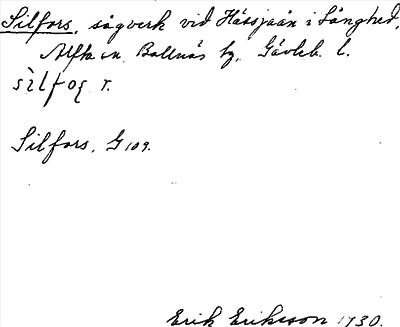 Silfors, sågverk vid Hässjaån i Långhed,
Alfta sn, Bollnäs tg, Gävleb. l.
sìlfoʂ r.
Silfors, G 109.
Erik Eriksson 1930.